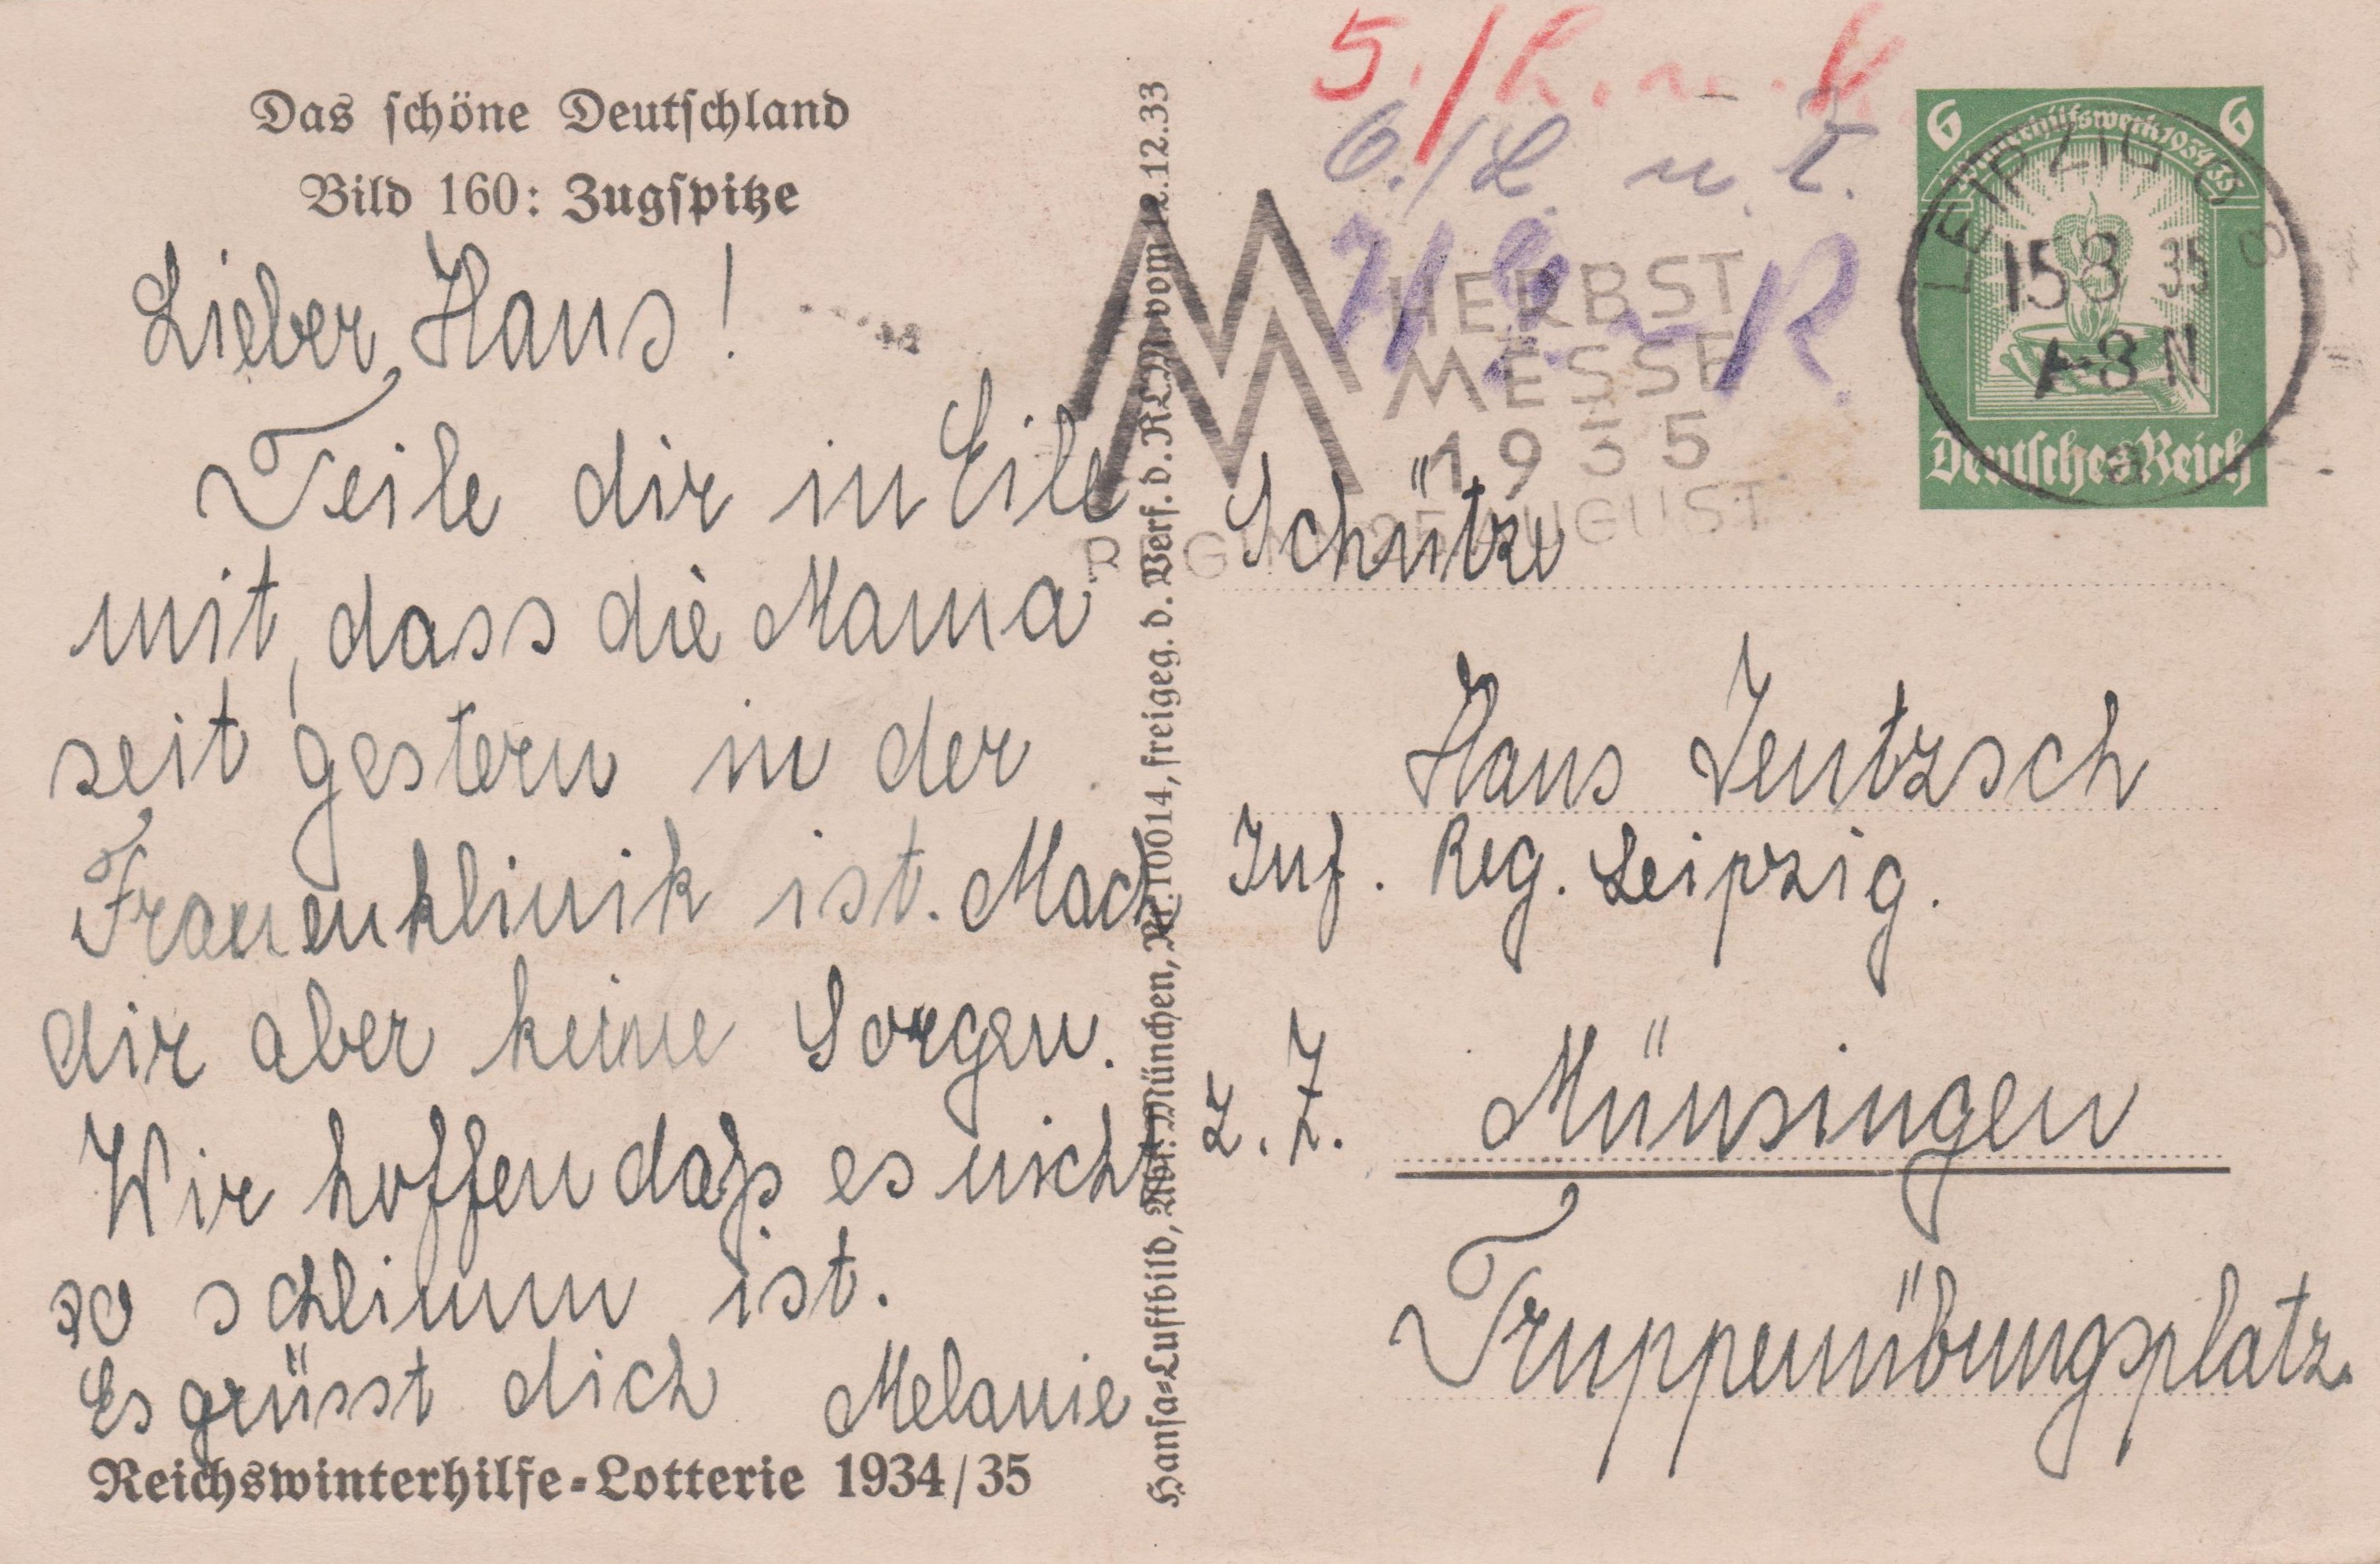 Das schöne Deutschland
Bild 160: Zugspitze
Lieber Hans!
Teile dir in Eile
mit, dass die Mama
seit gestern in der
Frauenklinik ist. Mach
dir aber keine Sorgen.
Wir hoffen daß es nicht
so schlimm ist.
Es grüsst dich Melanie
Reichswinterhilfe-Lotterie 1934/35
Hansa-Luftbild, Abt. München, Nr. 10014, freigeg. d. Verf. d. RLM vom 12.12.33
5./
6./L. u. R.
M HERBST
MESSE
1935
BEGINN 25. AUGUST
6 6
Winterhilfswerk 1934/35
Deutsches Reich
LEIPZIG C
15 8 35
8 N
a
Schütze
Hans Jentzsch
Inf. Reg. Leipzig.
z. Z. Münsingen
Truppenübungsplatz.